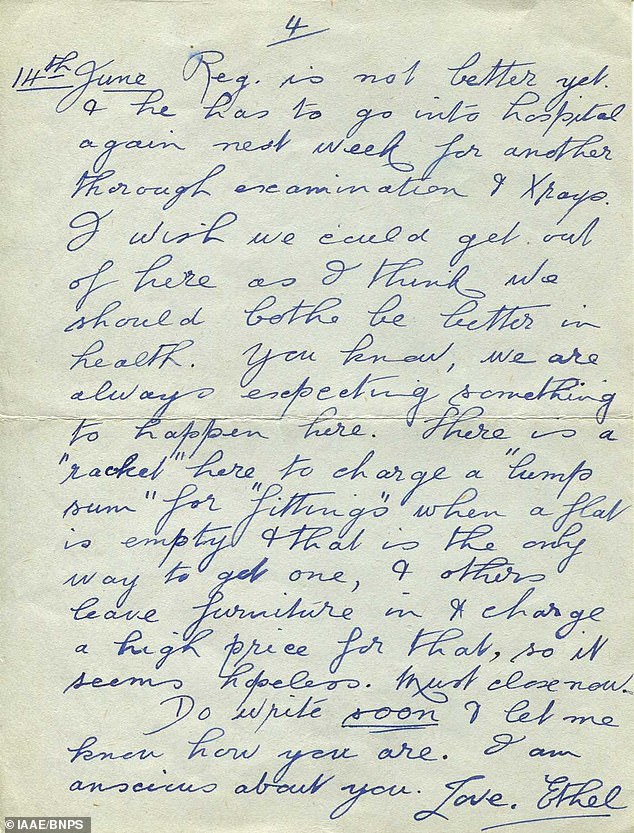 4
14th June Reg. is not better yet.
& he has to go into hospital
again next week for another
thorough examination & Xrays.
I wish we could get out
of here as I think we
should bothe be better in
health. You know, we are
always expecting something
to happen here. There is a
"racket" here to charge a "lump
sum" for "fittings" when a flat
is empty & that is the only
way to get one, & others
leave furniture in & charge
a high price for that, so it
seems hopeless. Must close now.
Do write soon & let me
know how you are. I am
anxious about you. Love. Ethel
© IAAE/BNPS